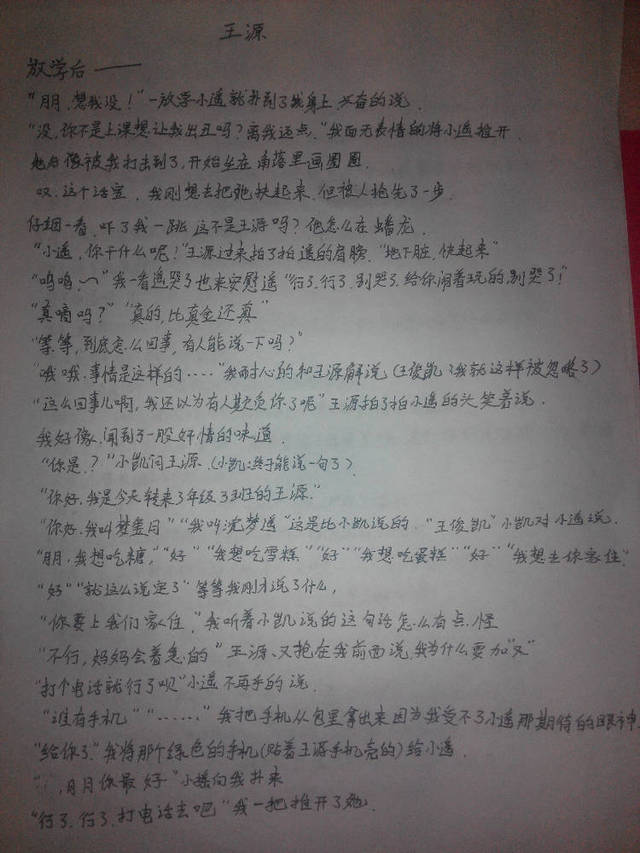 王源
放学后——
"朋,想我没！"一放学小遥就扑到了我身上兴奋的说.
"没,你不是上课想让我出丑吗？离我远点."我面无表情的将小遥推开.
她好像被我打击到了,开始坐在角落里画圈圈.
哎.这个活宝.我刚想去把她扶起来.但被人抢先了一步.
仔细一看.吓了我一跳这不是王源吗？他怎么在蟠龙.
"小遥,你干什么呢！"王源过来拍了拍遥的肩膀."地下脏.快起来"
"呜呜.~"我一看遥哭了也来安慰遥"行了.行了.别哭了.给你闹着玩的,别哭了！"
"真嘀吗？""真的,比真金还真"
"等.等,到底怎么回事,有人能说一下吗？"
"哦哦.事情是这样的....."我耐心的和王源解说(王俊凯:我就这样被忽略了)
"这么回事儿啊,我还以为有人欺负你了呢"王源拍了拍小遥的头笑着说.
我好像.闻到了一股奸情的味道.
"你是.？"小凯问王源.(小凯:终于能说一句了)
"你好.我是今天转来3年级3班的王源."
"你好.我叫梦月""我叫沈梦遥"这是比小凯说的."王俊凯"小凯对小遥说.
"朋.我想吃糖.""好""我想吃雪糕""好""我想吃蛋糕""好""我想去你家住"
"好""就这么说定了"等等我刚才说了什么,
"你要上我们家住."我听着小凯说的这句话怎么有点.怪
"不行.妈妈会着急的"王源.又抢在我前面说,我为什么要加"又"
"打个电话就行了呗"小遥不再乎的说.
"谁有手机""......"我把手机从包里拿出来因为我受不了小遥那期待的眼神.
"给你了."我将那个绿色的手机(贴着王源手机壳的)给小遥.
",月月你最好"小摇向我扑来
"行了.行了.打电话去吧"我一把推开了她.